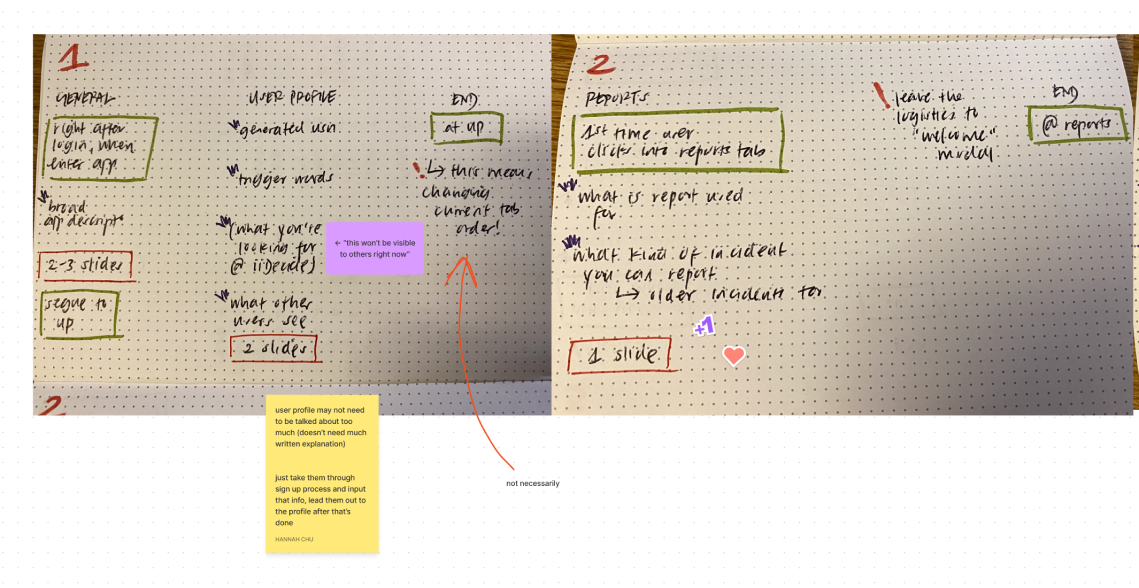 1
GENERAL
right after
login, when
enter app
broad
app descript°
2-3 slides
segue to
up
USER PROFILE
generated usn
trigger words
(what you're
looking for
@ iiDecide)
← "this won't be visible
to others right now"
what other
users see
2 slides
END
at up
! ↳ this means
changing
current tab
order!
2
user profile may not need
to be talked about too
much (doesn't need much
written explanation)
just take them through
sign up process and input
that info, lead them out to
the profile after that's
done
HANNAH CHU
not necessarily
2
REPORTS
1st time user
clicks into reports tab
what is report used
for
what kind of incident
you can report
↳ older incidents too
+1
1 slide
! leave the
logistics to
"welcome"
modal
END
@ reports